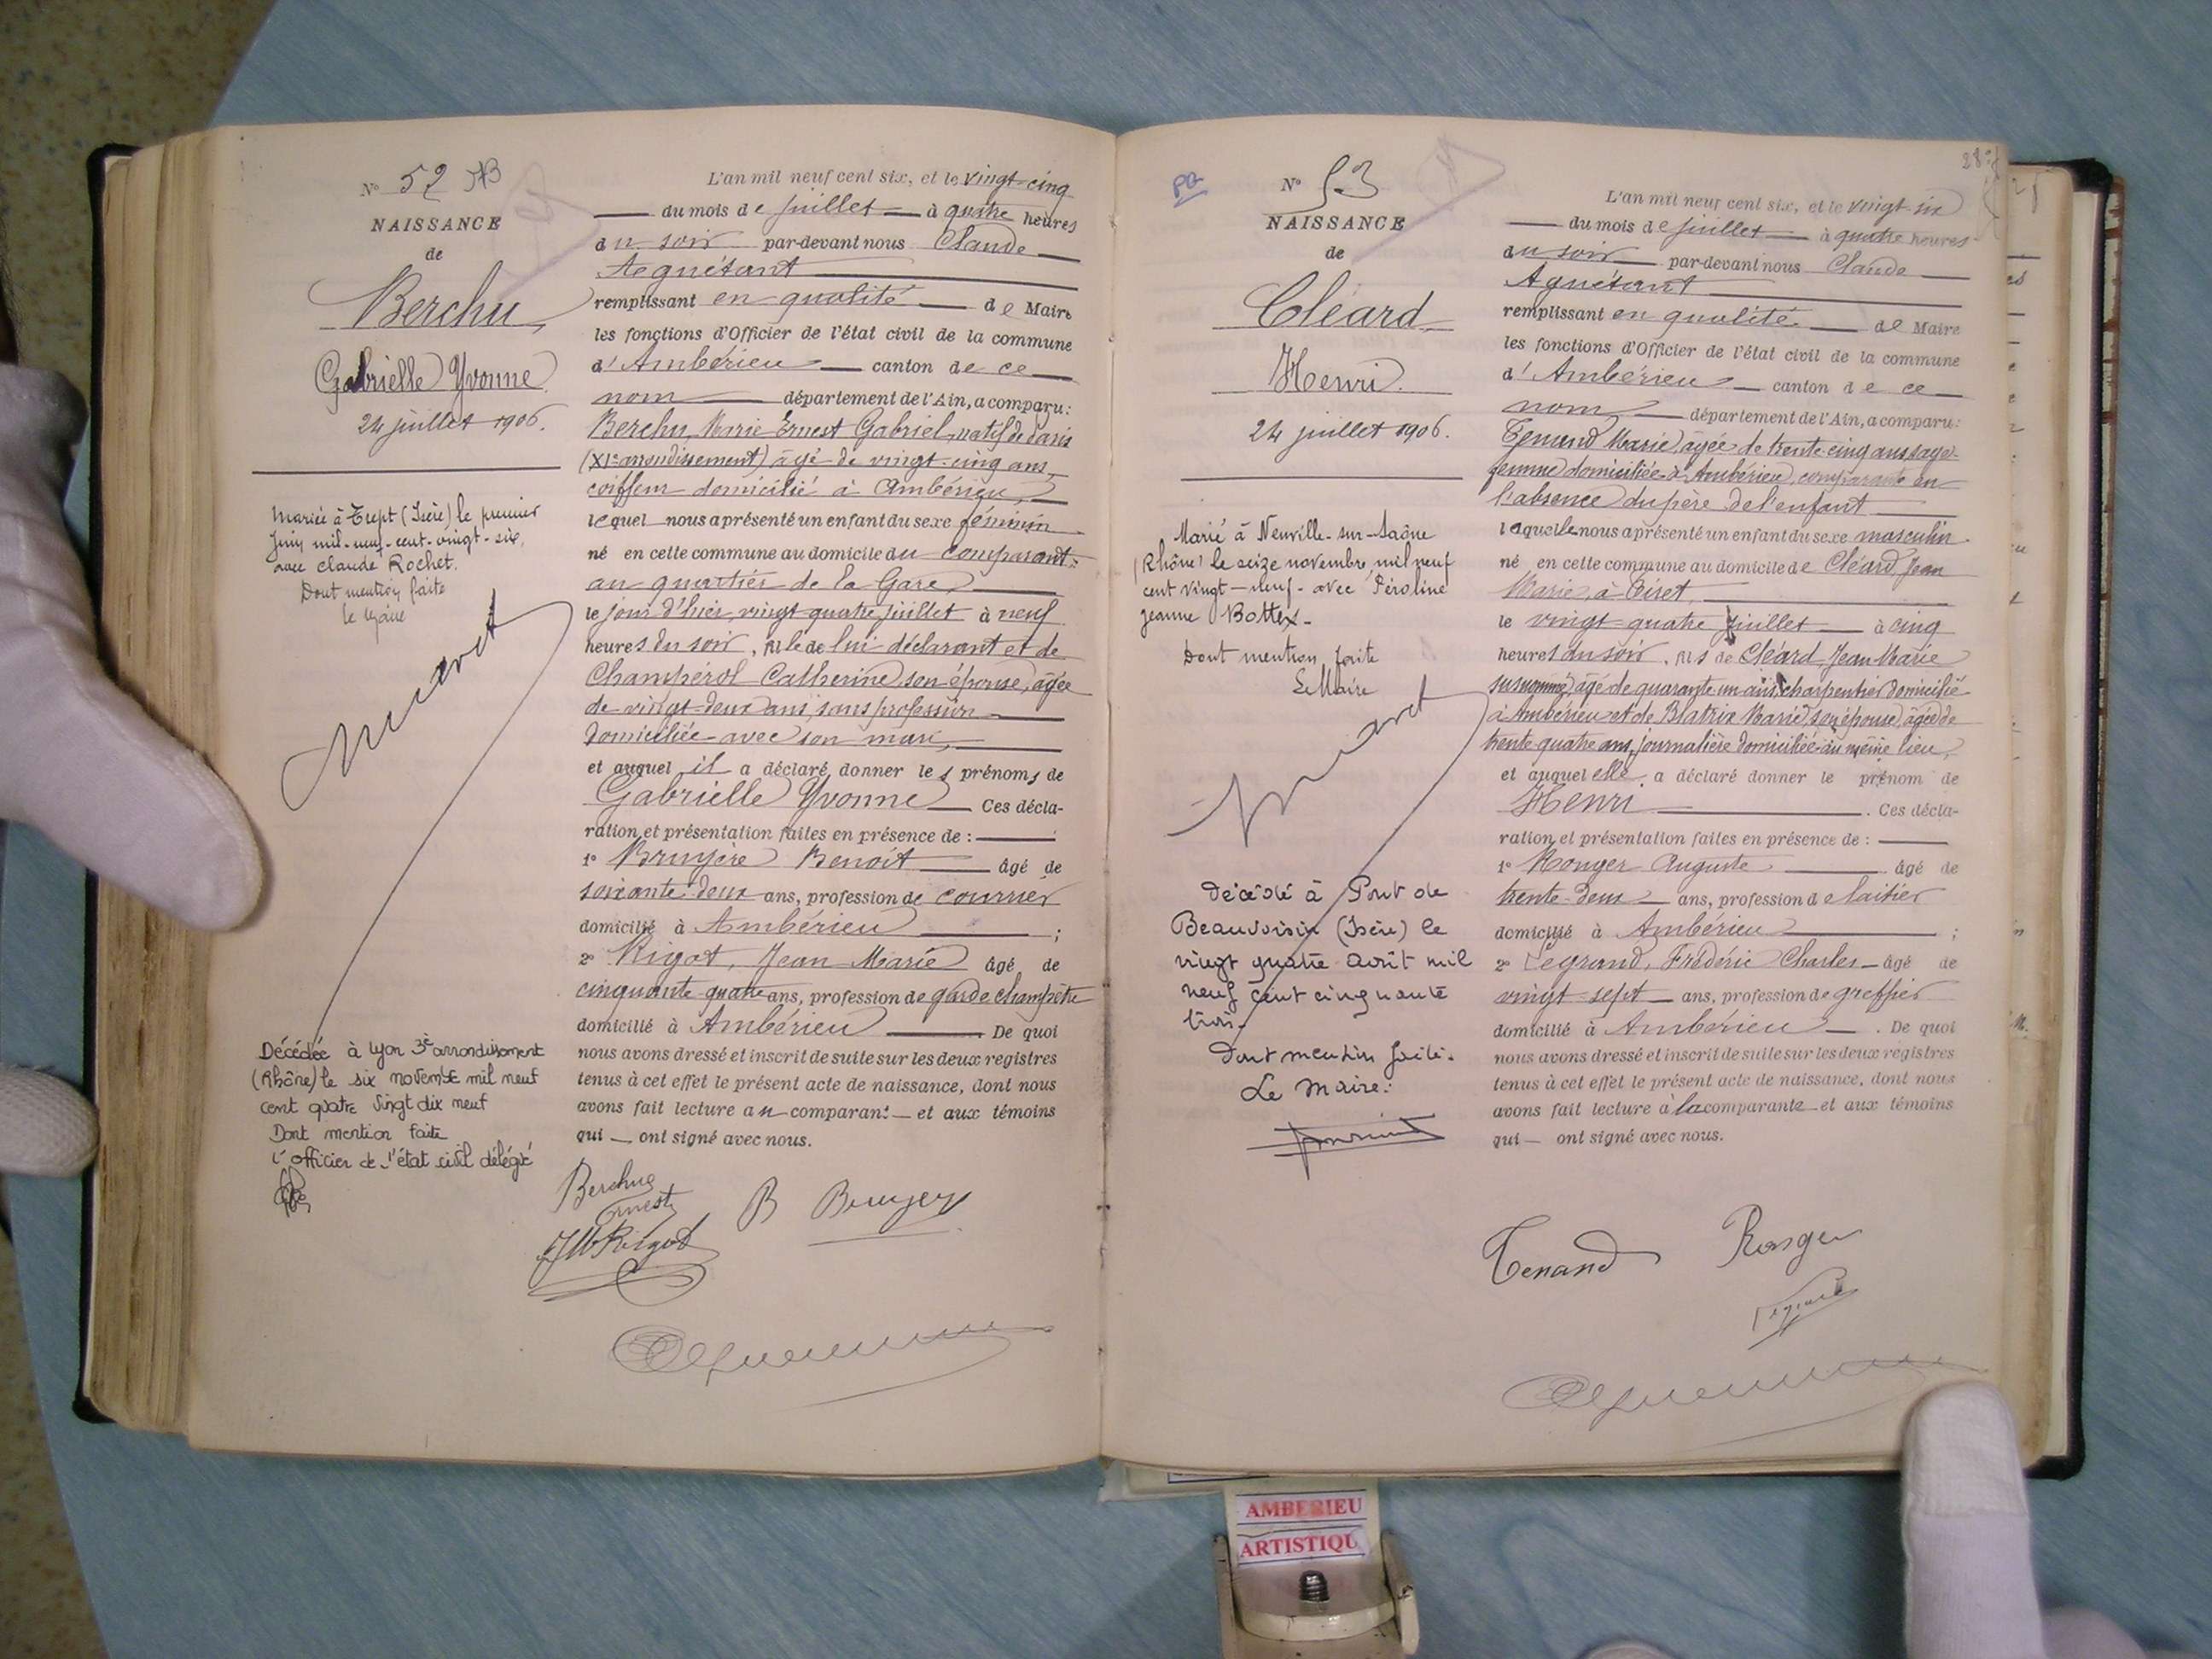 N° 52
NAISSANCE
de
Berchu
Gabrielle Yvonne
24 juillet 1906.
Mariée à Trept (Isère) le premier
Juin mil-neuf-cent-vingt-six,
avec Claude Rochet.
Dont mention faite
le Maire
Décédée à Lyon 3è arrondissement
(Rhône) le six novembre mil neuf
cent quatre vingt dix neuf
Dont mention faite
l'officier de l'état civil délégué
L'an mil neuf cent six, et le vingt-cinq
du mois de juillet à quatre heures
du soir par-devant nous Claude
Aguétant
remplissant en qualité de Maire
les fonctions d'Officier de l'état civil de la commune
d'Ambérieu canton de ce
nom département de l'Ain, a comparu:
Berchu, Marie Ernest Gabriel, natif de Paris
(XIe arrondissement) âgé de vingt-cinq ans,
coiffeur domicilié à Ambérieu,
lequel nous a présenté un enfant du sexe féminin
né en cette commune au domicile du comparant,
au quartier de la Gare,
le jour d'hier, vingt quatre juillet à neuf
heures du soir, fille de lui déclarant et de
Champérol Catherine, son épouse, âgée
de vingt-deux ans, sans profession
domiciliée avec son mari,
et auquel il a déclaré donner les prénoms de
Gabrielle Yvonne Ces décla-
ration et présentation faites en présence de :
1° Bruyère Benoît âgé de
soixante-deux ans, profession de courrier
domicilié à Ambérieu ;
2° Rigot, Jean Marie âgé de
cinquante-quatre ans, profession de garde champêtre
domicilié à Ambérieu De quoi
nous avons dressé et inscrit de suite sur les deux registres
tenus à cet effet le présent acte de naissance, dont nous
avons fait lecture au comparant et aux témoins
qui ont signé avec nous.
Berchu
Ernest
B Bruyer
JM Rigot
N° 53
NAISSANCE
de
Cléard
Henri.
24 juillet 1906.
Marié à Neuville-sur-Saône
(Rhône) le seize novembre mil neuf
cent vingt-neuf - avec Péroline
Jeanne Bottex-
Dont mention faite
Le Maire
Décédé à Pont de
Beauvoisin (Isère) le
vingt quatre août mil
neuf cent cinquante
trois.
Dont mention faite.
Le Maire:
L'an mil neuf cent six, et le vingt-six
du mois de juillet à quatre heures
du soir par-devant nous Claude
Aguétant
remplissant en qualité de Maire
les fonctions d'Officier de l'état civil de la commune
d'Ambérieu canton de ce
nom département de l'Ain, a comparu:
Tenand Marie, âgée de trente-cinq ans, sage-
femme domiciliée à Ambérieu, comparante en
l'absence du père de l'enfant
laquelle nous a présenté un enfant du sexe masculin
né en cette commune au domicile de Cléard Jean
Marie, à
le vingt-quatre juillet à cinq
heures du soir, fils de Cléard Jean Marie
susnommé, âgé de quarante un ans, charpentier domicilié
à Ambérieu et de Blatrix Marie, son épouse, âgée de
trente-quatre ans, journalière domiciliée au même lieu,
et auquel elle a déclaré donner le prénom de
Henri . Ces décla-
ration et présentation faites en présence de :
1° Ronger Auguste âgé de
trente-deux ans, profession de laitier
domicilié à Ambérieu ;
2° Legrand, Frédéric Charles âgé de
vingt-sept ans, profession de greffier
domicilié à Ambérieu . De quoi
nous avons dressé et inscrit de suite sur les deux registres
tenus à cet effet le présent acte de naissance, dont nous
avons fait lecture à la comparante et aux témoins
qui ont signé avec nous.
Tenand Ronger
AMBERIEU
ARTISTIQU